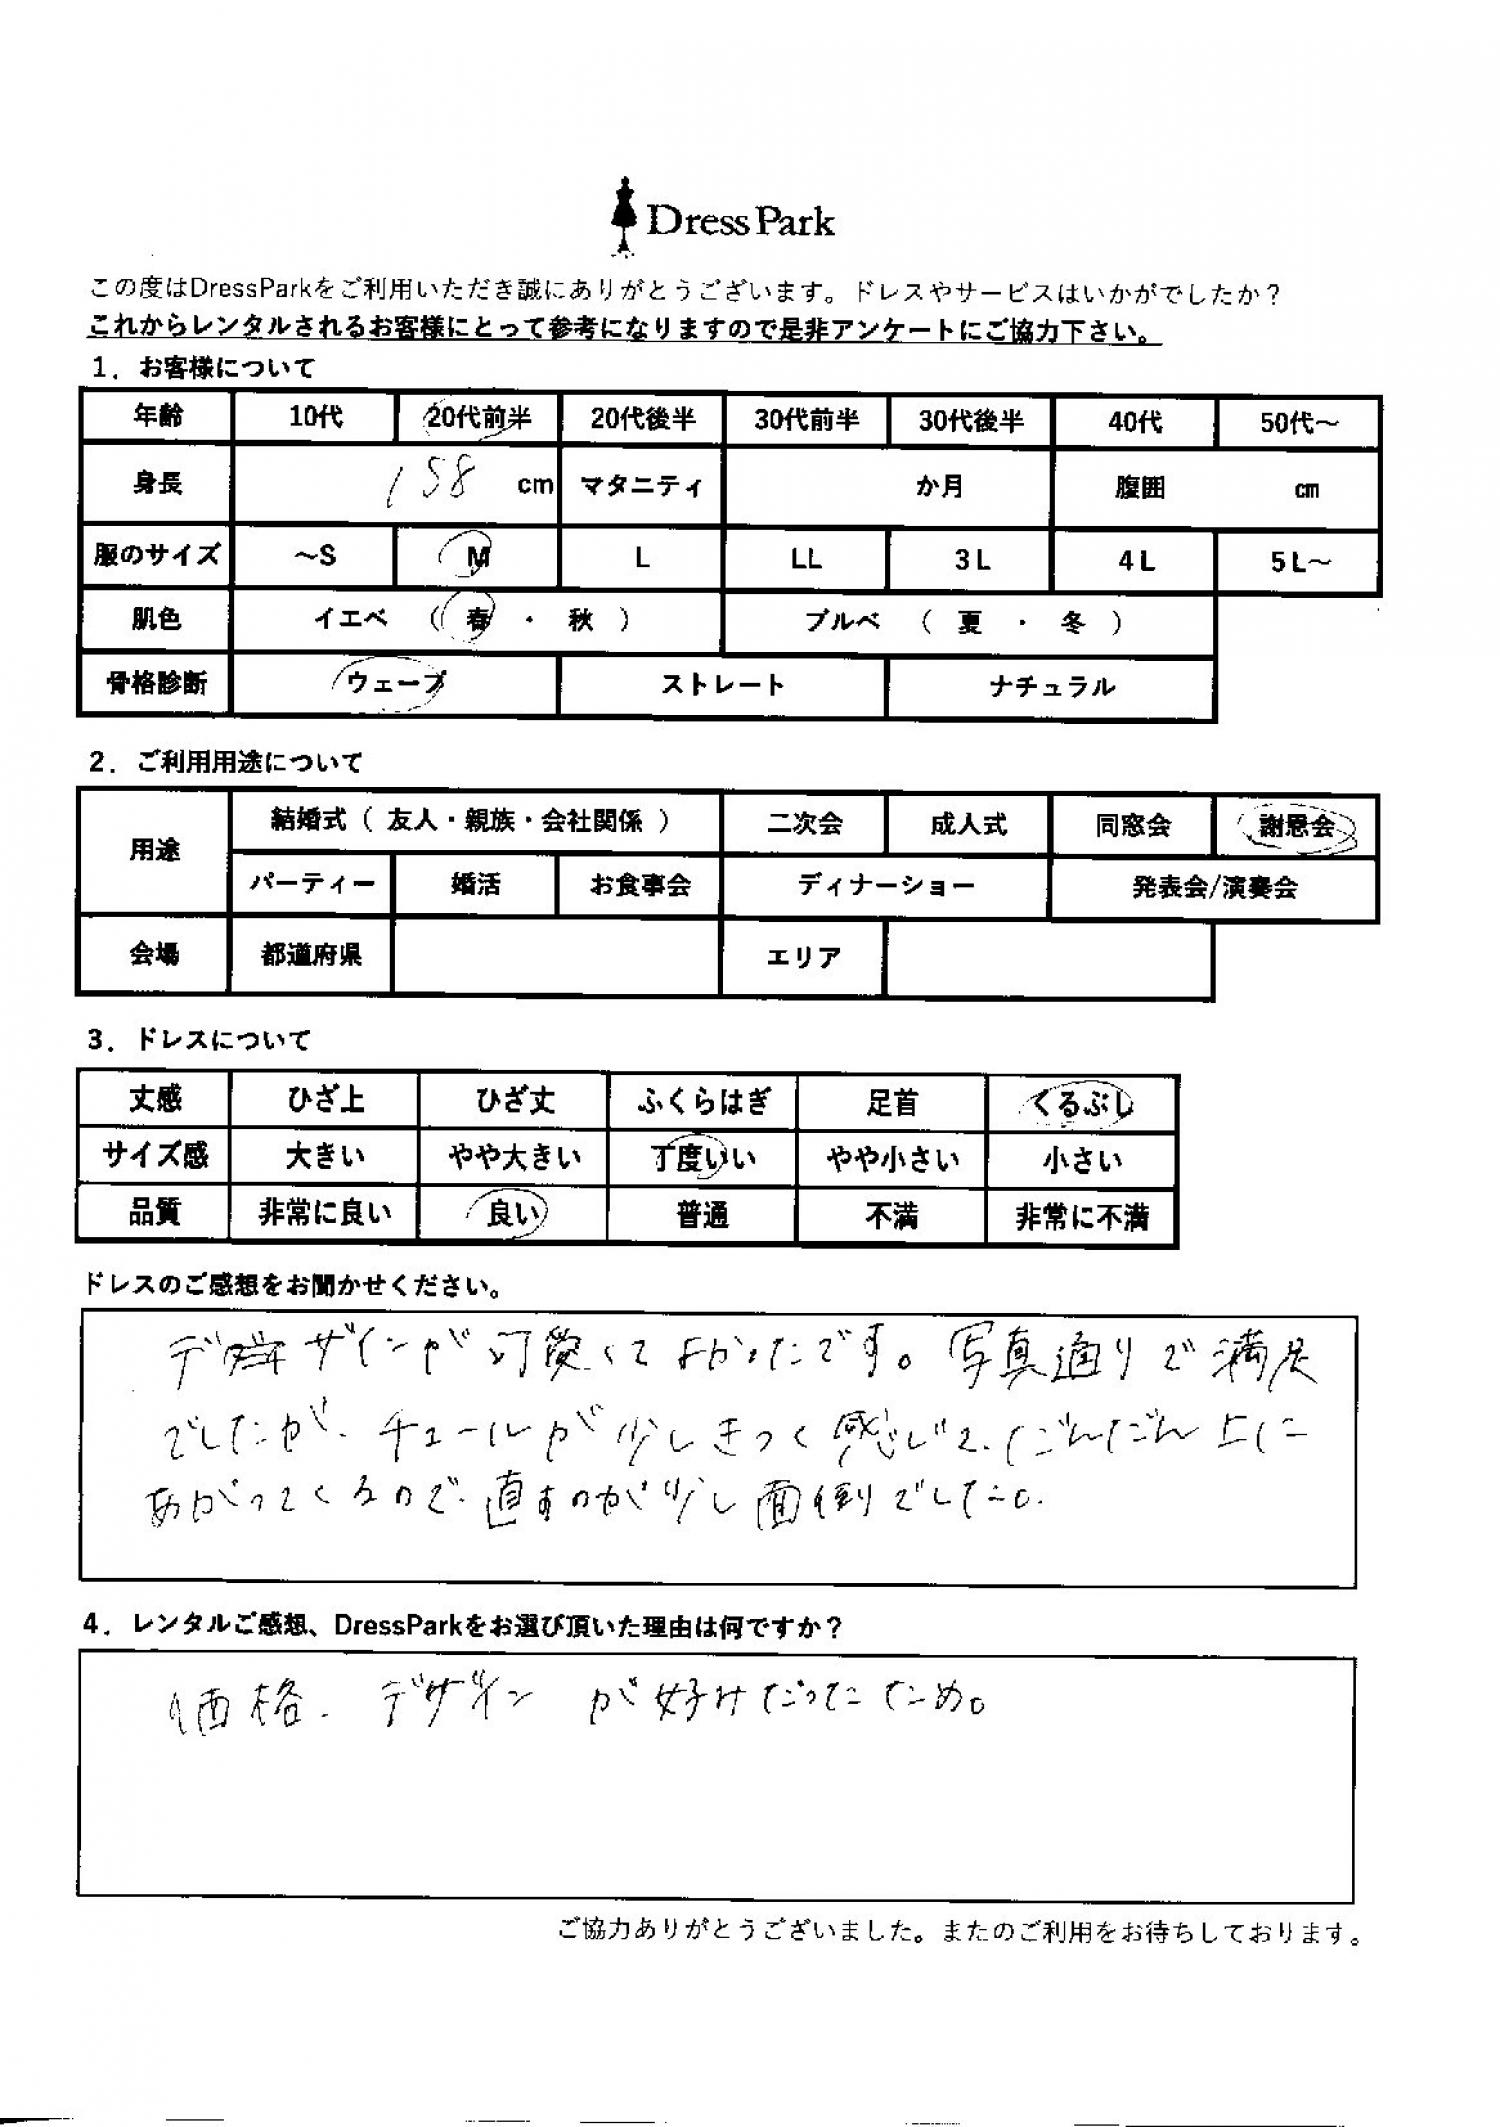 Dress Park
この度はDressParkをご利用いただき誠にありがとうございます。ドレスやサービスはいかがでしたか？
これからレンタルされるお客様にとって参考になりますので是非アンケートにご協力下さい。
1．お客様について
年齢 10代 20代前半 20代後半 30代前半 30代後半 40代 50代～
身長 158 cm マタニティ か月 腹囲 cm
服のサイズ ～S M L LL 3L 4L 5L～
肌色 イエベ （ 春 ・ 秋 ） ブルベ （ 夏 ・ 冬 ）
骨格診断 ウェーブ ストレート ナチュラル
2．ご利用用途について
用途 結婚式（ 友人・親族・会社関係 ） 二次会 成人式 同窓会 謝恩会
パーティー 婚活 お食事会 ディナーショー 発表会/演奏会
会場 都道府県 エリア
3．ドレスについて
丈感 ひざ上 ひざ丈 ふくらはぎ 足首 くるぶし
サイズ感 大きい やや大きい 丁度いい やや小さい 小さい
品質 非常に良い 良い 普通 不満 非常に不満
ドレスのご感想をお聞かせください。
デザインが可愛くてよかったです。写真通りで満足
でしたが、チュールが少しきつく感じて、だんだん上に
あがってくるので、直すのが少し面倒でした。
4．レンタルご感想、DressParkをお選び頂いた理由は何ですか？
価格、デザインが好みだったため。
ご協力ありがとうございました。またのご利用をお待ちしております。